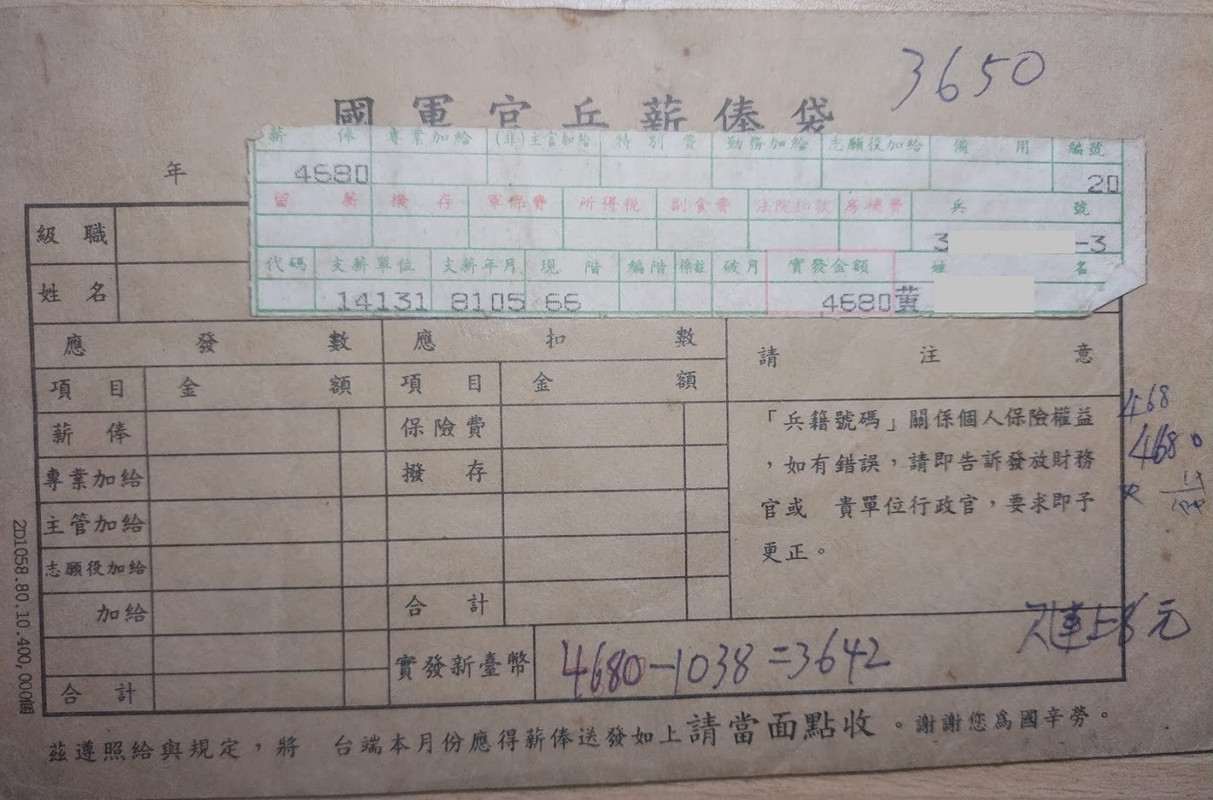 3650
國軍官兵薪俸袋
薪俸 專業加給 (非)主官加給 特別費 勤務加給 志願役加給 備用 編號
4680 20
留薪 機存 軍保費 所得稅 副食費 法院扣款 房補費 兵號
3 -3
代碼 支薪單位 支薪年月 現階 編階 標註 破月 實發金額 姓名
14131 8105 66 4680 黃
年
級職
姓名
應發數 應扣數 請注意
項目 金額 項目 金額
薪俸 保險費
專業加給 撥存
主管加給
志願役加給
加給 合計
合計
實發新臺幣 4680-1038=3642
「兵籍號碼」關係個人保險權益
,如有錯誤,請即告訴發放財務
官或 貴單位行政官,要求即予
更正。
468
4680
欠連上8元
2D1058.80.10.400,000個
茲遵照給與規定,將 台端本月份應得薪俸送發如上請當面點收。謝謝您為國辛勞。